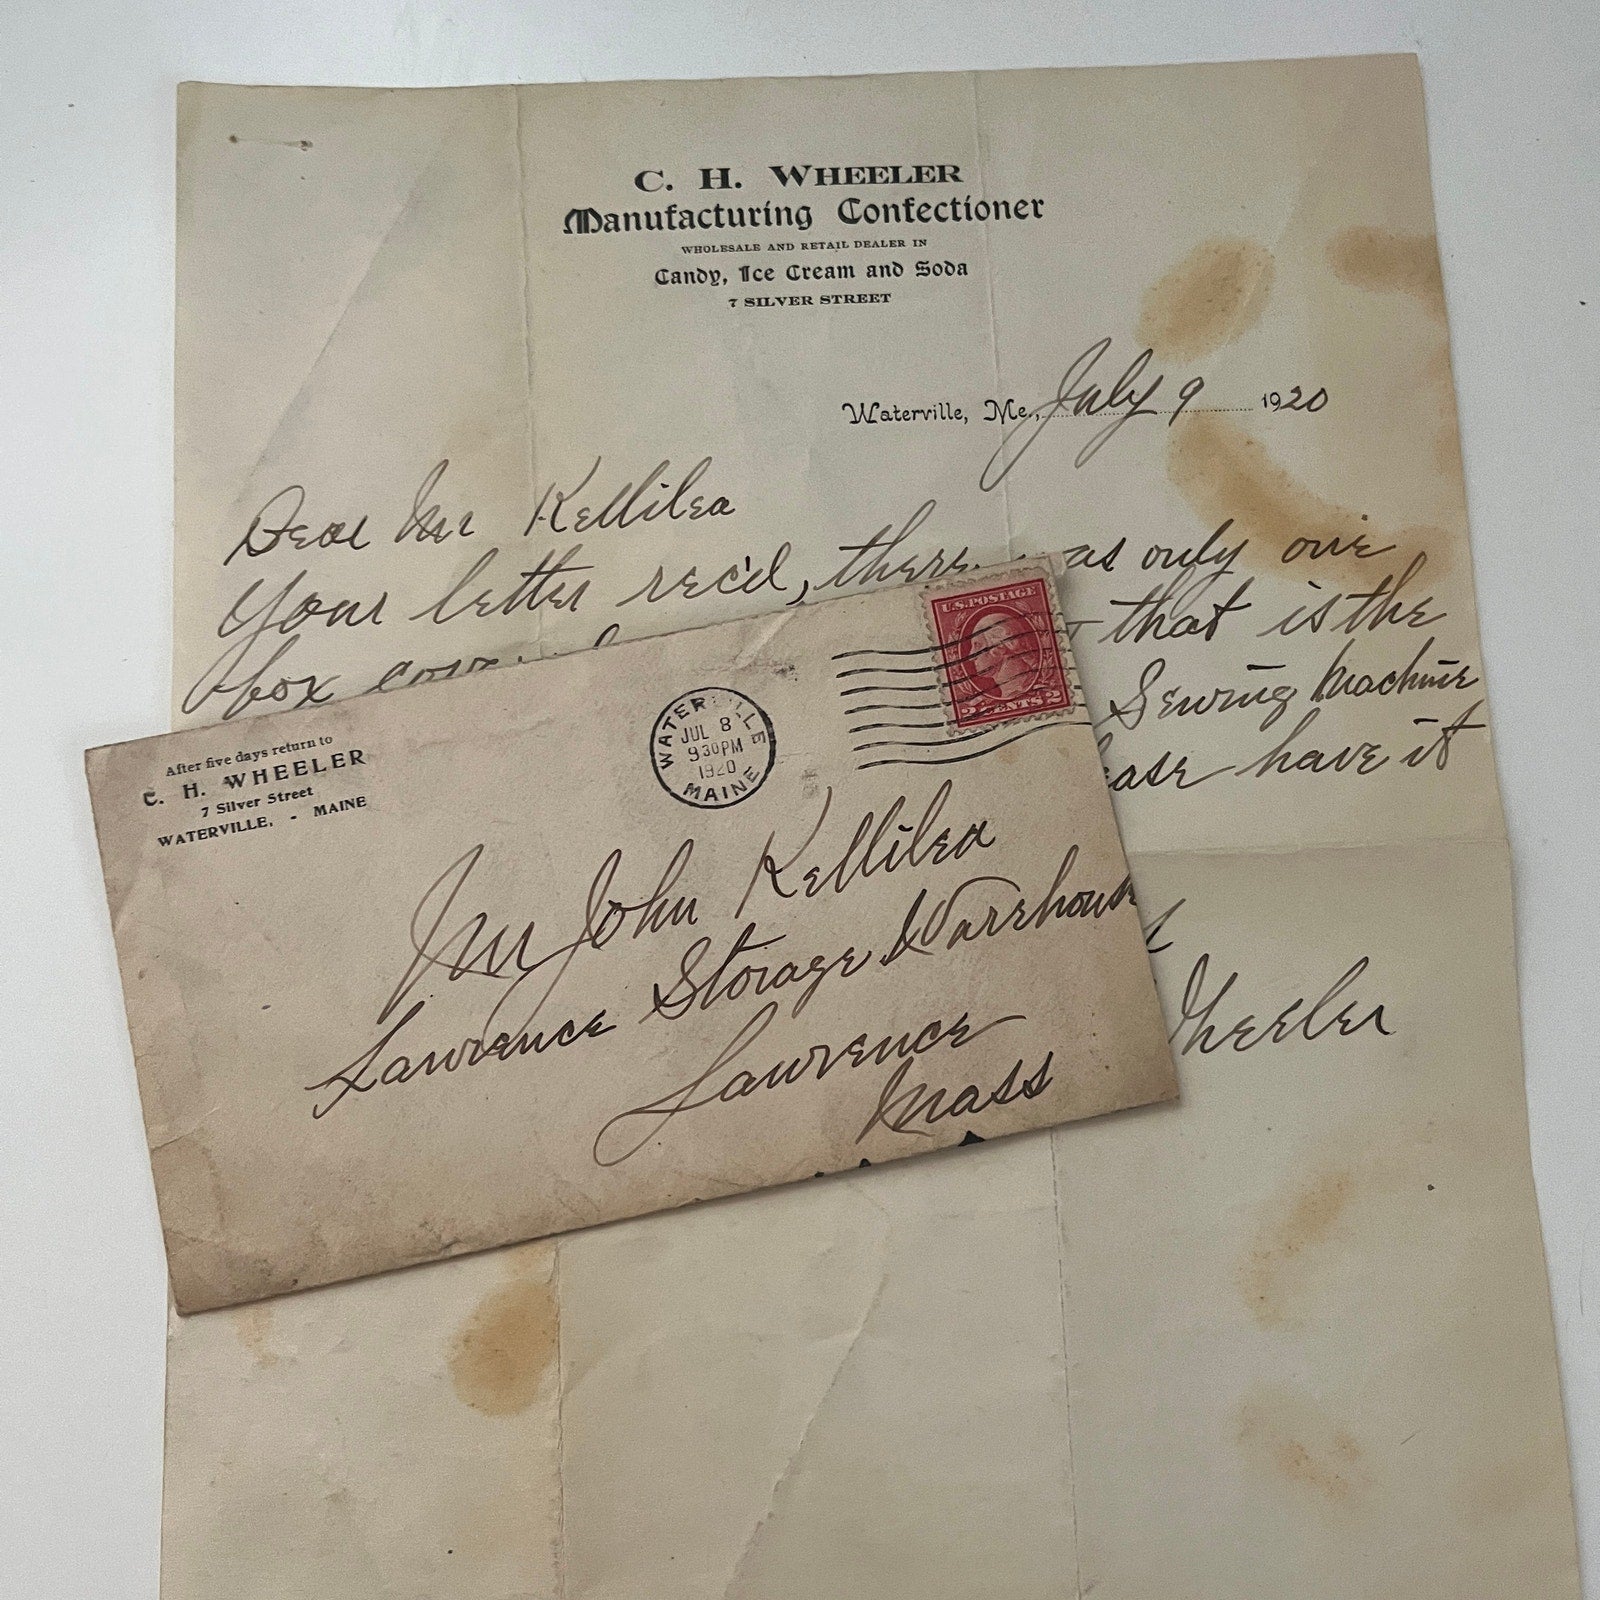 C. H. WHEELER
Manufacturing Confectioner
WHOLESALE AND RETAIL DEALER IN
Candy, Ice Cream and Soda
7 SILVER STREET
Waterville, Me., July 9 1920
Dear Mr Kellilea
Your letter rec'd, there as only one
box that is the
Sewing Machine
have it
Wheeler
After five days return to
C. H. WHEELER
7 Silver Street
WATERVILLE, - MAINE
WATERVILLE
JUL 8
930PM
1920
MAINE
U.S. POSTAGE
2 CENTS 2
Mr John Kellilea
Lawrence Storage Warehouse
Lawrence
Mass